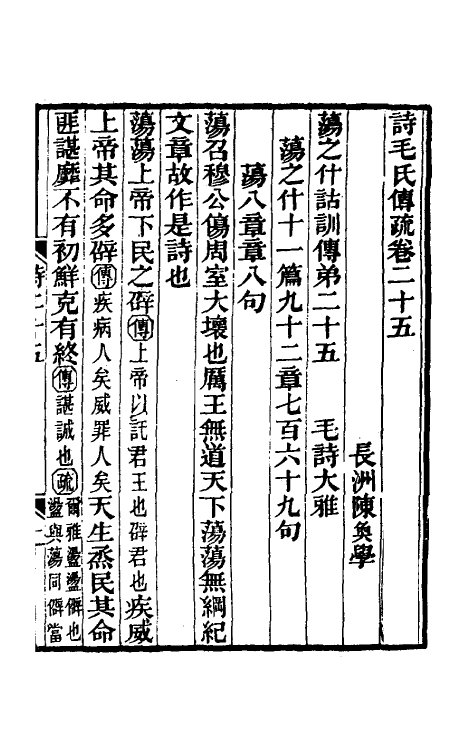 詩毛氏傳疏卷二十五
長洲陳奐學
蕩之什詁訓傳弟二十五　毛詩大雅
蕩之什十一篇九十二章七百六十九句
蕩八章章八句
蕩召穆公傷周室大壞也厲王無道天下蕩蕩無綱紀
文章故作是詩也
蕩蕩上帝下民之辟傳上帝以託君王也辟君也疾威
上帝其命多辟傳疾病人矣威罪人矣天生烝民其命
匪諶靡不有初鮮克有終傳諶誠也疏爾雅盪盪僻也
盪與蕩同僻當
詩二十五